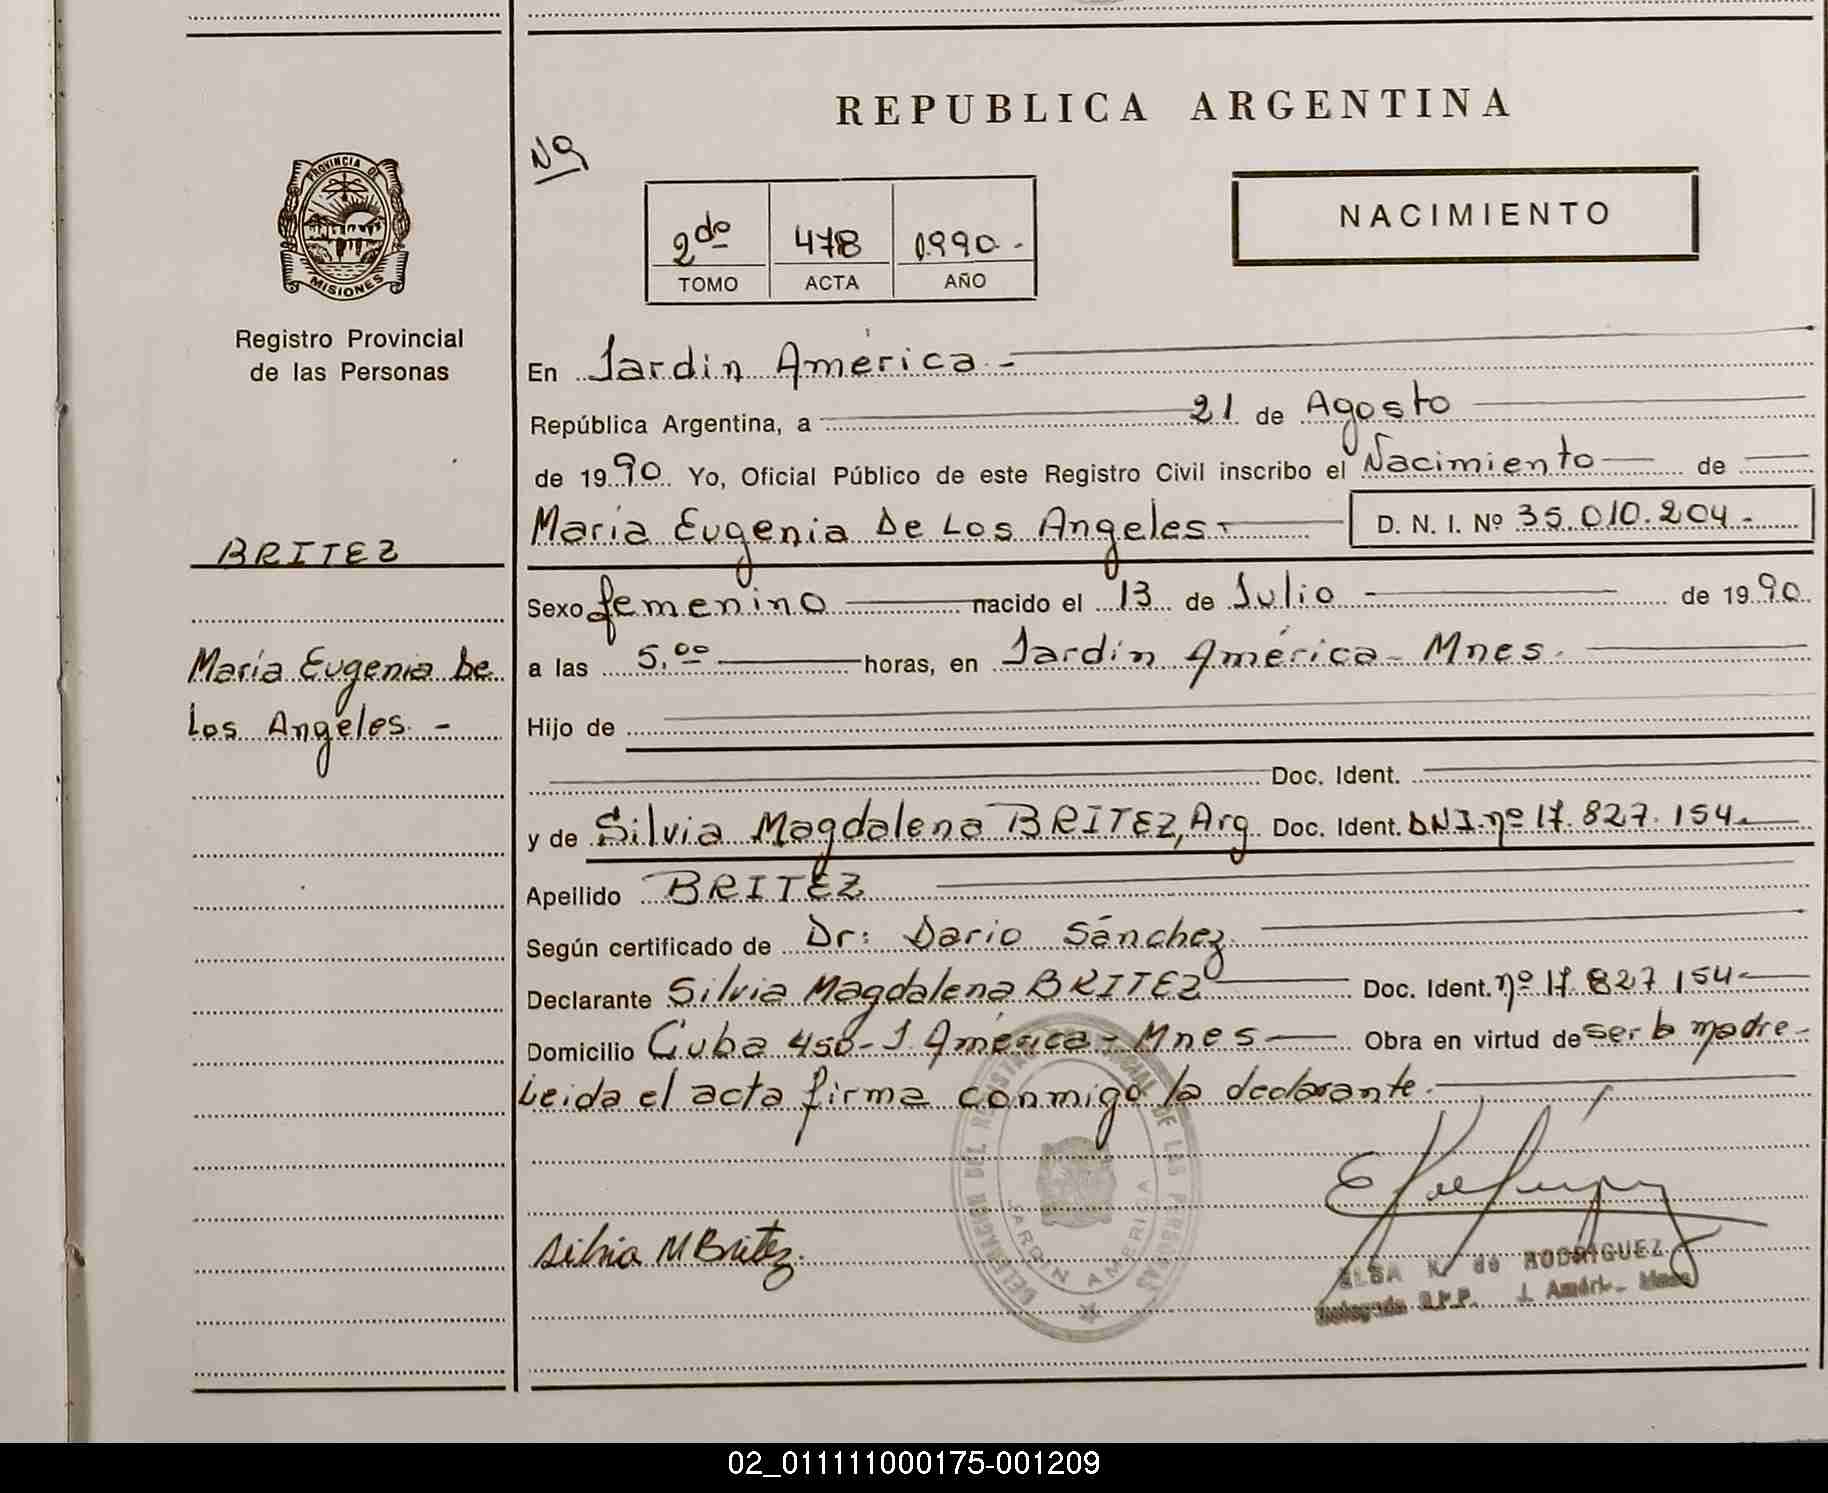 REPUBLICA ARGENTINA
Nº
NACIMIENTO
PROVINCIA DE
MISIONES
Registro Provincial
de las Personas
2do 478 1990.-
TOMO ACTA AÑO
En Jardin América.-
República Argentina, a 21 de Agosto
de 1990. Yo, Oficial Público de este Registro Civil inscribo el Nacimiento de
María Eugenia De Los Angeles.- D. N. I. Nº 35.010.204.-
BRITEZ
María Eugenia De
Los Angeles.-
Sexo femenino nacido el 13 de Julio de 1990.
a las 5,00 horas, en Jardin América- Mnes.
Hijo de
Doc. Ident.
y de Silvia Magdalena BRITEZ, Arg. Doc. Ident. DNI. nº 17.827.154.-
Apellido BRITEZ
Según certificado de Dr: Dario Sánchez.
Declarante Silvia Magdalena BRITEZ Doc. Ident. nº 17.827.154-
Domicilio Cuba 450- J. América- Mnes Obra en virtud de ser la madre-
Leida el acta firma conmigo la declarante.
Silvia M Britez.
DE LAS PERSONAS
JARDIN AMERICA
ELSA N. de RODRIGUEZ
Delegada R.P.P. J. Améri
02_011111000175-001209